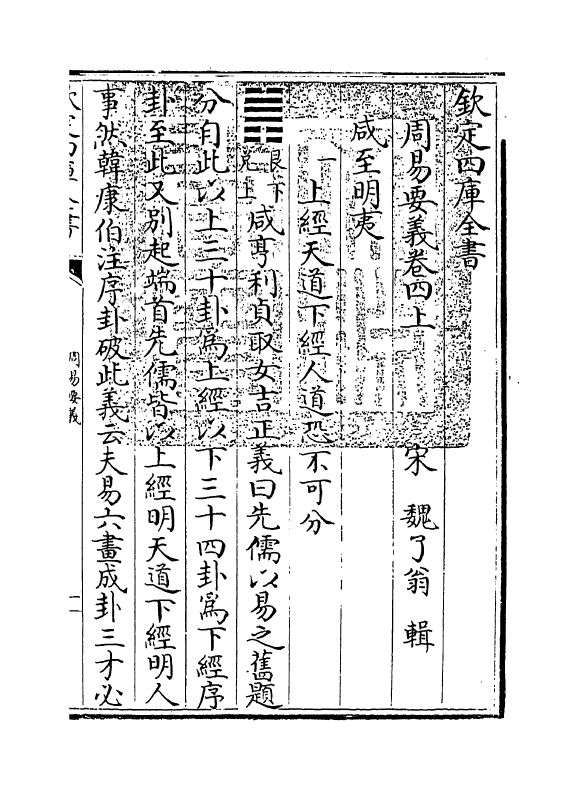 欽定四庫全書
周易要義卷四上
宋 魏了翁 輯
咸至明夷
一 上經天道下經人道恐不可分
䷞ 艮下兌上 咸亨利貞取女吉正義曰先儒以易之舊題
分自此以上三十卦為上經以下三十四卦為下經序
卦至此又别起端首先儒皆以上經明天道下經明人
事然韓康伯注序卦破此義云夫易六畫成卦三才必
周易要義